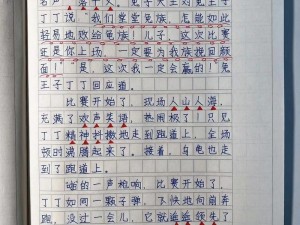 名声，
丁丁说："我们堂堂兔族，怎能如此
轻易地败给龟族！儿子，这次比赛
还是你上场，一定要为我族挽回颜
面！""是，这次我一定会赢的！"兔
王子丁丁回应道。
比赛开始了，现场人山人海，
充满了欢声笑语，热闹极了！只见
丁丁精神抖擞地走到跑道上，全场
顿时沸腾起来了。接着，白龟也走
到了跑道上。
的一声枪响，比赛开始了，
丁丁如同一颗子弹，飞快地向前奔
跑，没过一会儿，它就遥遥领先了